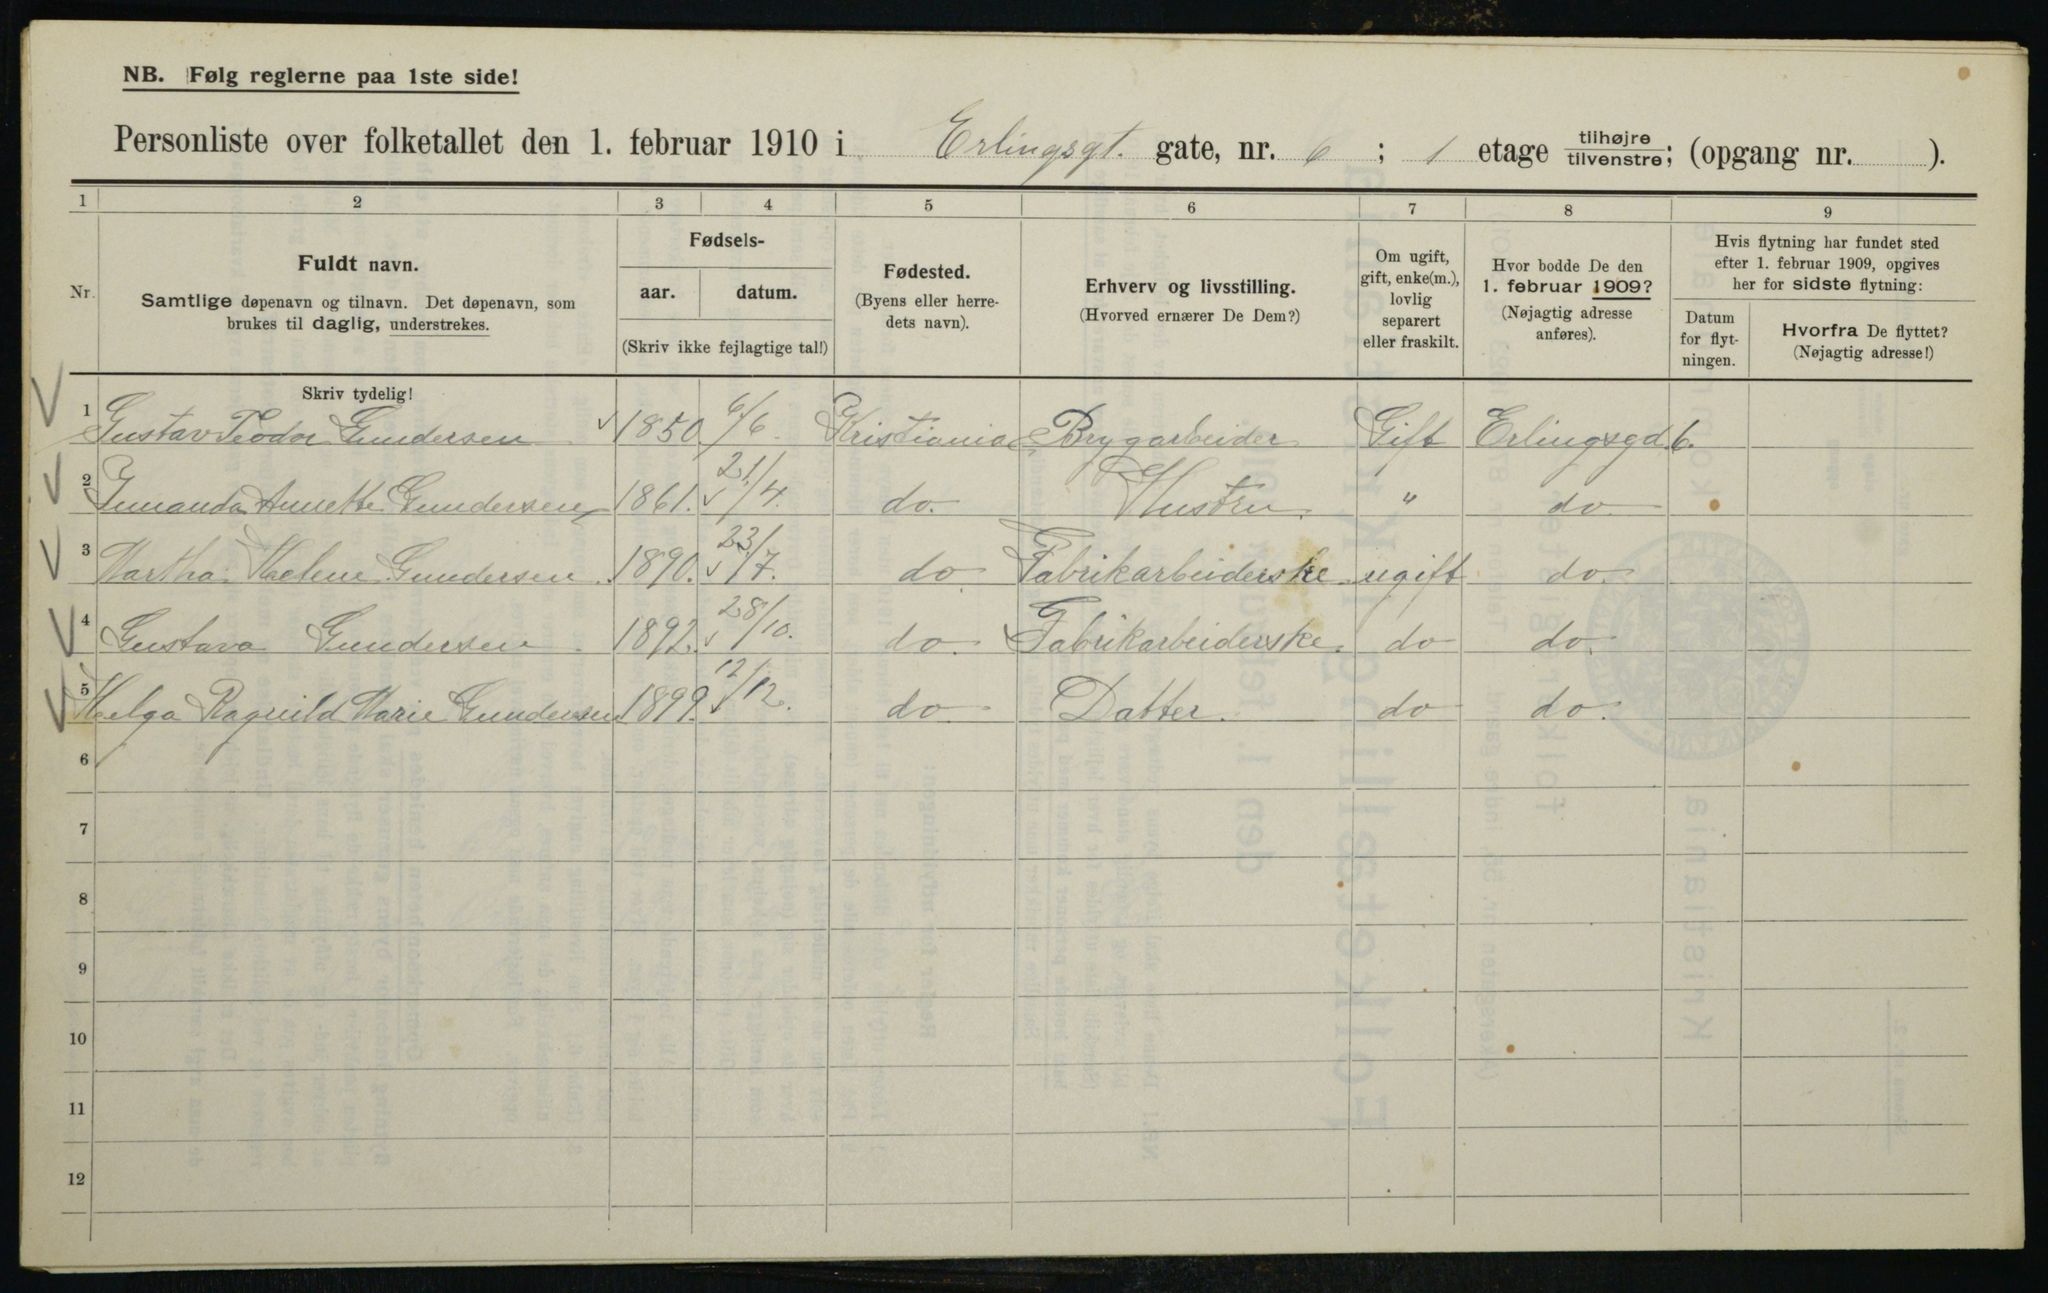 NB. Følg reglerne paa 1ste side!
Personliste over folketallet den 1. februar 1910 i Erlingsgt. gate, nr. 6 ; 1 etage tilhøjre/tilvenstre; (opgang nr. ).
1 2 3 4 5 6 7 8 9
Nr.
Fuldt navn.
Samtlige døpenavn og tilnavn. Det døpenavn, som
brukes til daglig, understrekes.
Fødsels-
aar. datum.
(Skriv ikke fejlagtige tal!)
Fødested.
(Byens eller herre-
dets navn).
Erhverv og livsstilling.
(Hvorved ernærer De Dem?)
Om ugift,
gift, enke(m.),
lovlig
separert
eller fraskilt.
Hvor bodde De den
1. februar 1909?
(Nøjagtig adresse
anføres).
Hvis flytning har fundet sted
efter 1. februar 1909, opgives
her for sidste flytning:
Datum
for flyt-
ningen.
Hvorfra De flyttet?
(Nøjagtig adresse!)
Skriv tydelig!
1 Gustav Teodor Gundersen 1850 6/6 Kristiania Brygarbeider Gift Erlingsgd. 6.
2 Annette Gundersen 1861. 21/4. do. Hustru. " do
3 Martha Helene Gundersen 1890. 23/7. do Fabrikarbeiderske ugift do.
4 Gustava Gundersen 1892. 28/10. do. Fabrikarbeiderske. do do.
5 Helga Ragnild Marie Gundersen 1899. 12/12. do Datter. do do.
6
7
8
9
10
11
12